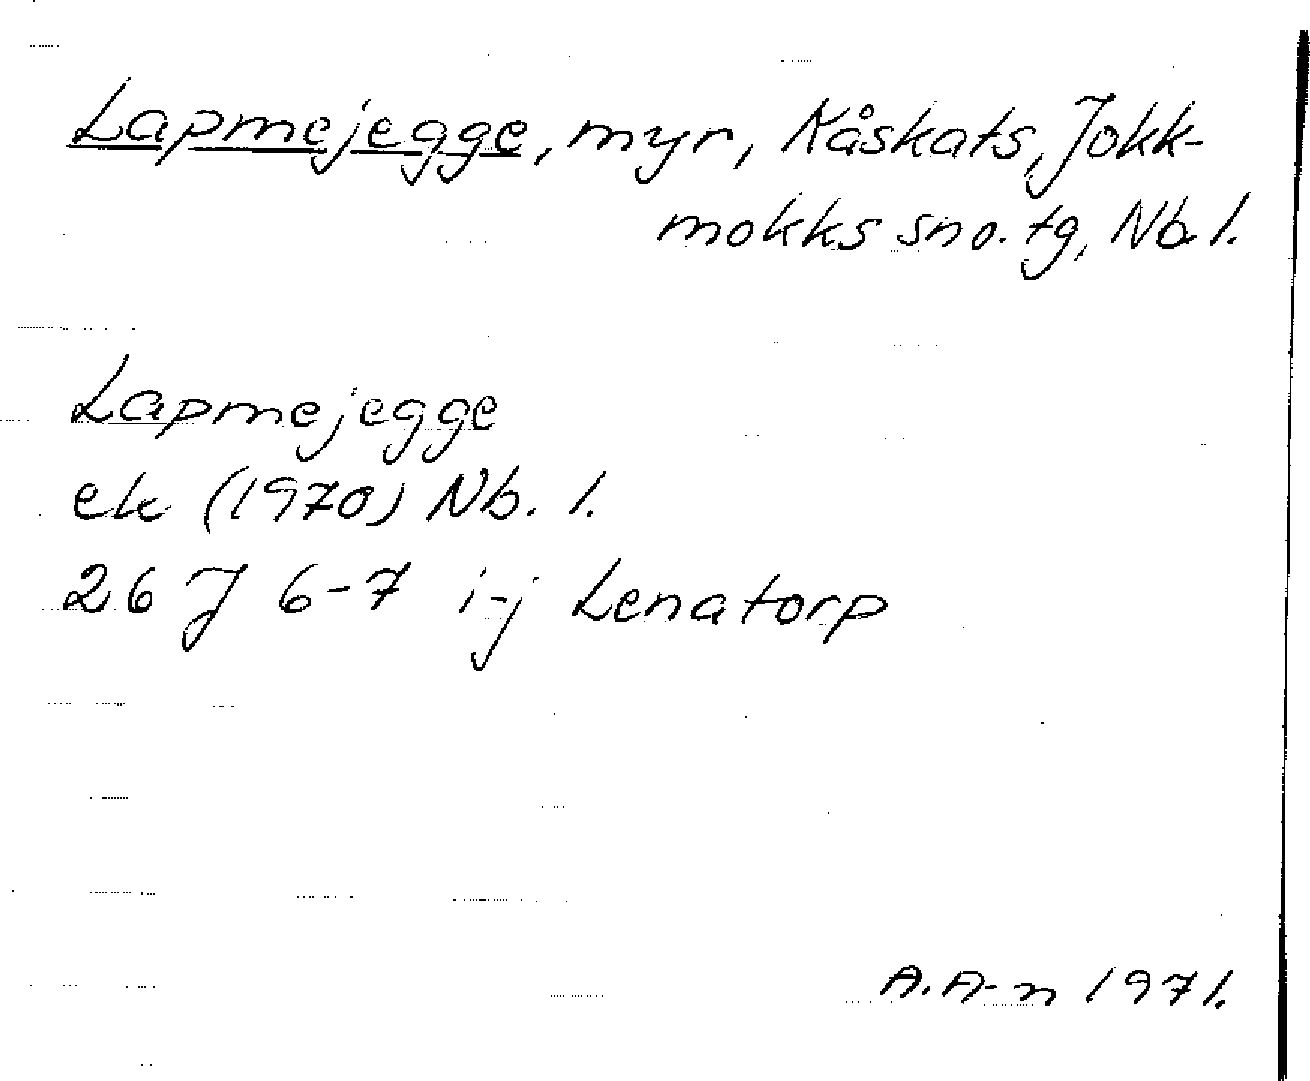 Lapmejegge, myr, Kåskats, Jokk-
mokks sno. tg, Nb. l.
Lapmejegge
ek (1970) Nb. l.
26 J 6-7 i-j Lenatorp
A. A-n 1971.